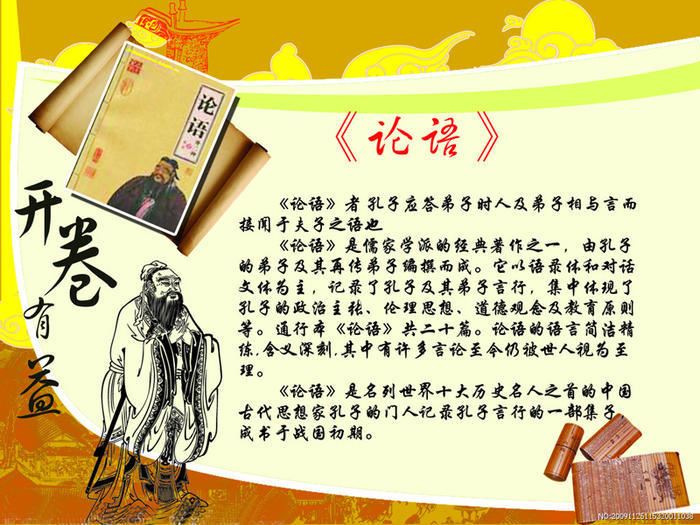 论语
《论语》
开卷
有益
《论语》者孔子应答弟子时人及弟子相与言而
接闻于夫子之语也
《论语》是儒家学派的经典著作之一，由孔子
的弟子及其再传弟子编撰而成。它以语录体和对话
文体为主，记录了孔子及其弟子言行，集中体现了
孔子的政治主张、伦理思想、道德观念及教育原则
等。通行本《论语》共二十篇。论语的语言简洁精
练,含义深刻,其中有许多言论至今仍被世人视为至
理。
《论语》是名列世界十大历史名人之首的中国
古代思想家孔子的门人记录孔子言行的一部集子
成书于战国初期。